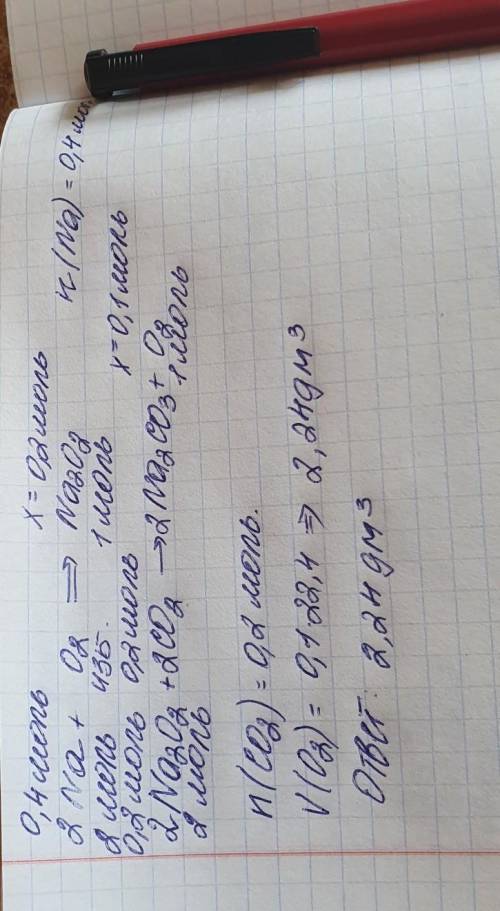 0,4 моль x = 0,2 моль
2 Na + O2 => Na2O2 n(Na) = 0,4 мол
2 моль изб. 1 моль
0,2 моль 0,2 моль x = 0,1 моль
2 Na2O2 + 2CO2 → 2 Na2CO3 + O2
2 моль 1 моль
n(CO2) = 0,2 моль.
V(O2) = 0,1·22,4 => 2,24 дм3
Ответ: 2,24 дм3